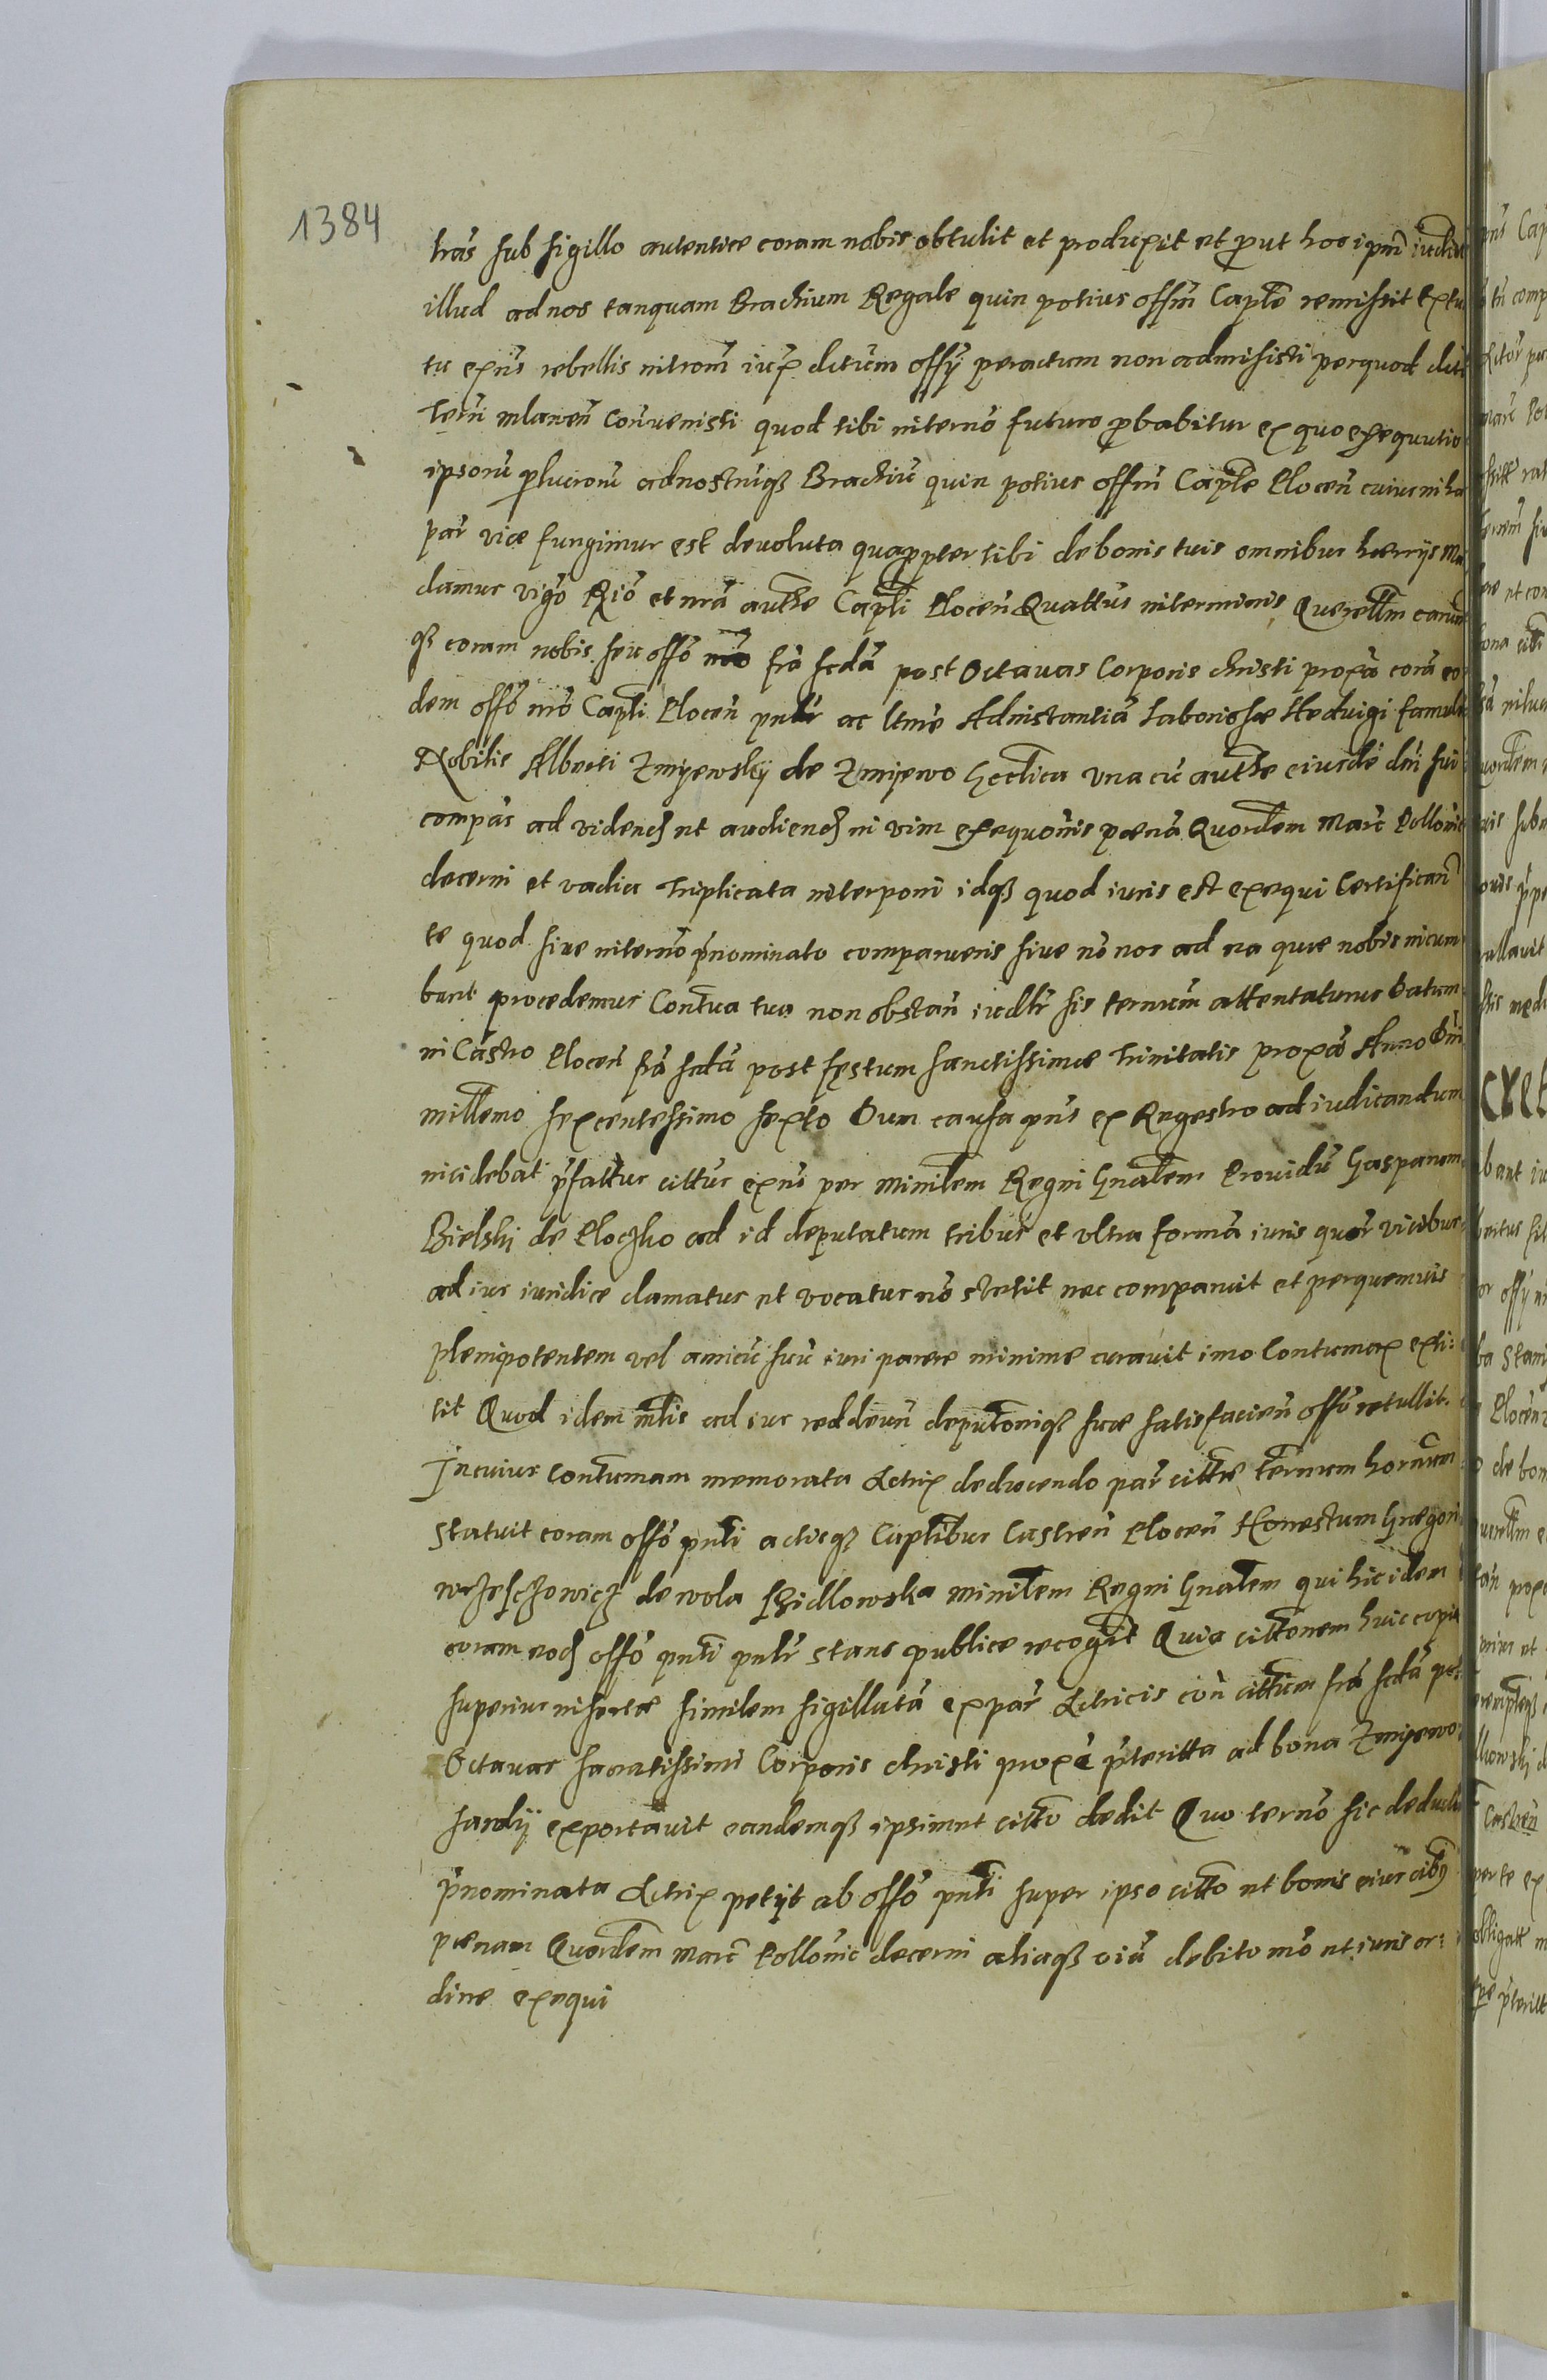 1384
tras sub sigillo autentice coram nobis obtulit et produxit et prout hoc ipm iudiciu
illud ad nos tanquam Brachium Regale quin potius offm Capłe remissit Extu
tu exns rebellis introm iux dictum offy peractum non admisisti perquod dict
term mlawen Convenisti quod tibi in termo futuro probabitur ex quo exequutio
ipsoru plucroru ad nostruq3 Brachiu quin potius offm Capłe Plocen cuius in ha
par vice fungimur est devoluta quapropter tibi de bonis tuis omnibus haerijs Ma
damus vigo Rio et nra authe Capłi Plocen Quattus in terminis Querellm earum
q3 coram nobis seu offo nro fra scda post Octavas Corporis christi proxa cora eo
dem offo nro Capłi Plocen pntr ac ltme Ad instantia Laboriosae Hedvigi famula
Nobilis Alberti Zmyewsky de Zmijewo Hectica una cu authe eiusde dni sui
compas ad videnđ et audienđ in vim exequonis paena Quordem Marc Pollonic
decerni et vadia triplicata interponi idq3 quod iuris est exequi Certifican
te quod sive in termo pnominato comparueris sive no nos ad ea quae nobis incum
bent procedemus Contva tua non obstan iudlr sis termm attentaturus Datum
in Castro Plocen fra scda post festum sanctissimae Trinitatis proxa Anno Dni
millemo sexcentessimo sexto Dum causa pns ex Regestro ad iudicandum
incidebat pfattus cittus exns per Minilem Regni Gnalem Providu Gasparem
Bielski de Ploczko ad id deputatum tribus et ultra forma iuris quar vicibus
ad ius iuridice clamatus et vocatus no stetit nec comparuit et perquemvis
plenipotentem vel amicu suu iuri parere minime curavit imo Contumax exti:
tit Quod idem mlis ad ius redden deputoniq3 suae satisfacien offo retullit.
In cuius Contumam memorata Actrix deducendo par cittae termm hornum
statuit coram offo pnti actisq3 Captibus Castren Plocen Honestum Gregori
wrzesczowicz de wola Szidlowska Minilem Regni Gnalem qui hic idem
coram eođ offo pnti pntr stans publice recogt Quia cittonem huic copia
superius insertae similem sigillata expar Actricis con cittum fra scda post
Octavas sacratissimi Corporis christi proxe pteritta ad bona Zmijewo
sardij exportavit eandemq3 ipsimet citto dedit Quo termo sic deducto
pnominata Actrix petijt ab offo pnti super ipso citto et bonis eius oibus
paenam Quordem Marc Pollonic decerni aliaq3 oia debito mo et iuris or:
dine exequi